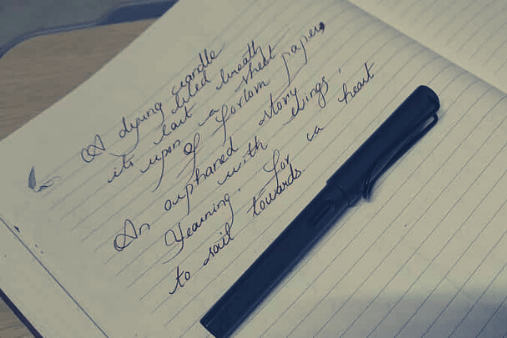 A dying candle
its last breath
upon a sheet
of forlorn paper,
An orphaned story
with strings;
Yearning for a heart
to sail towards.